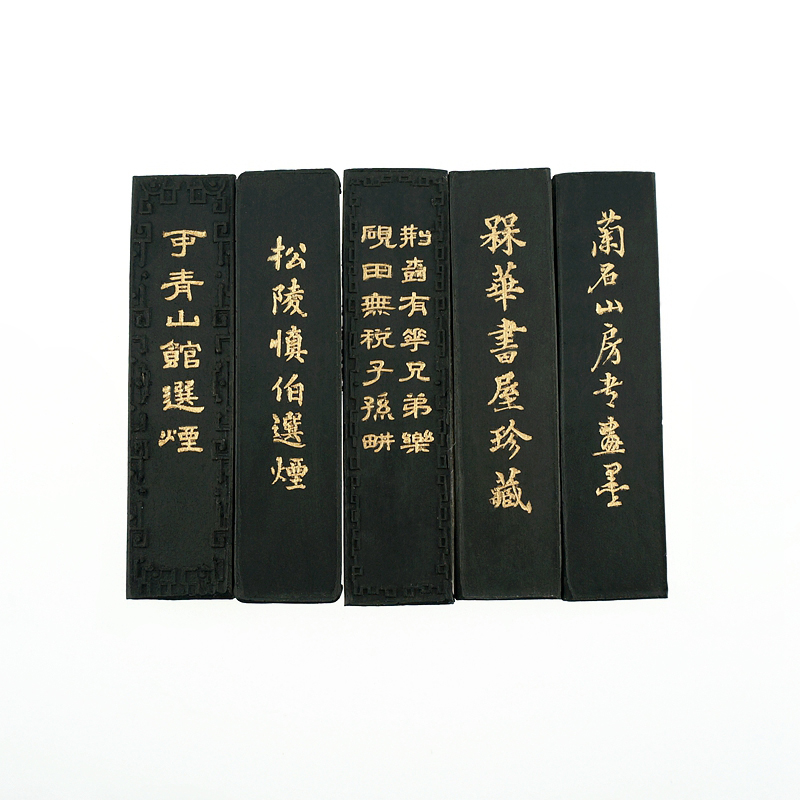 蘭石山房書畫墨
槑華書屋珍藏
荆有華兄弟樂
硯田無税子孫畊
松陵慎伯選煙
青山館選煙